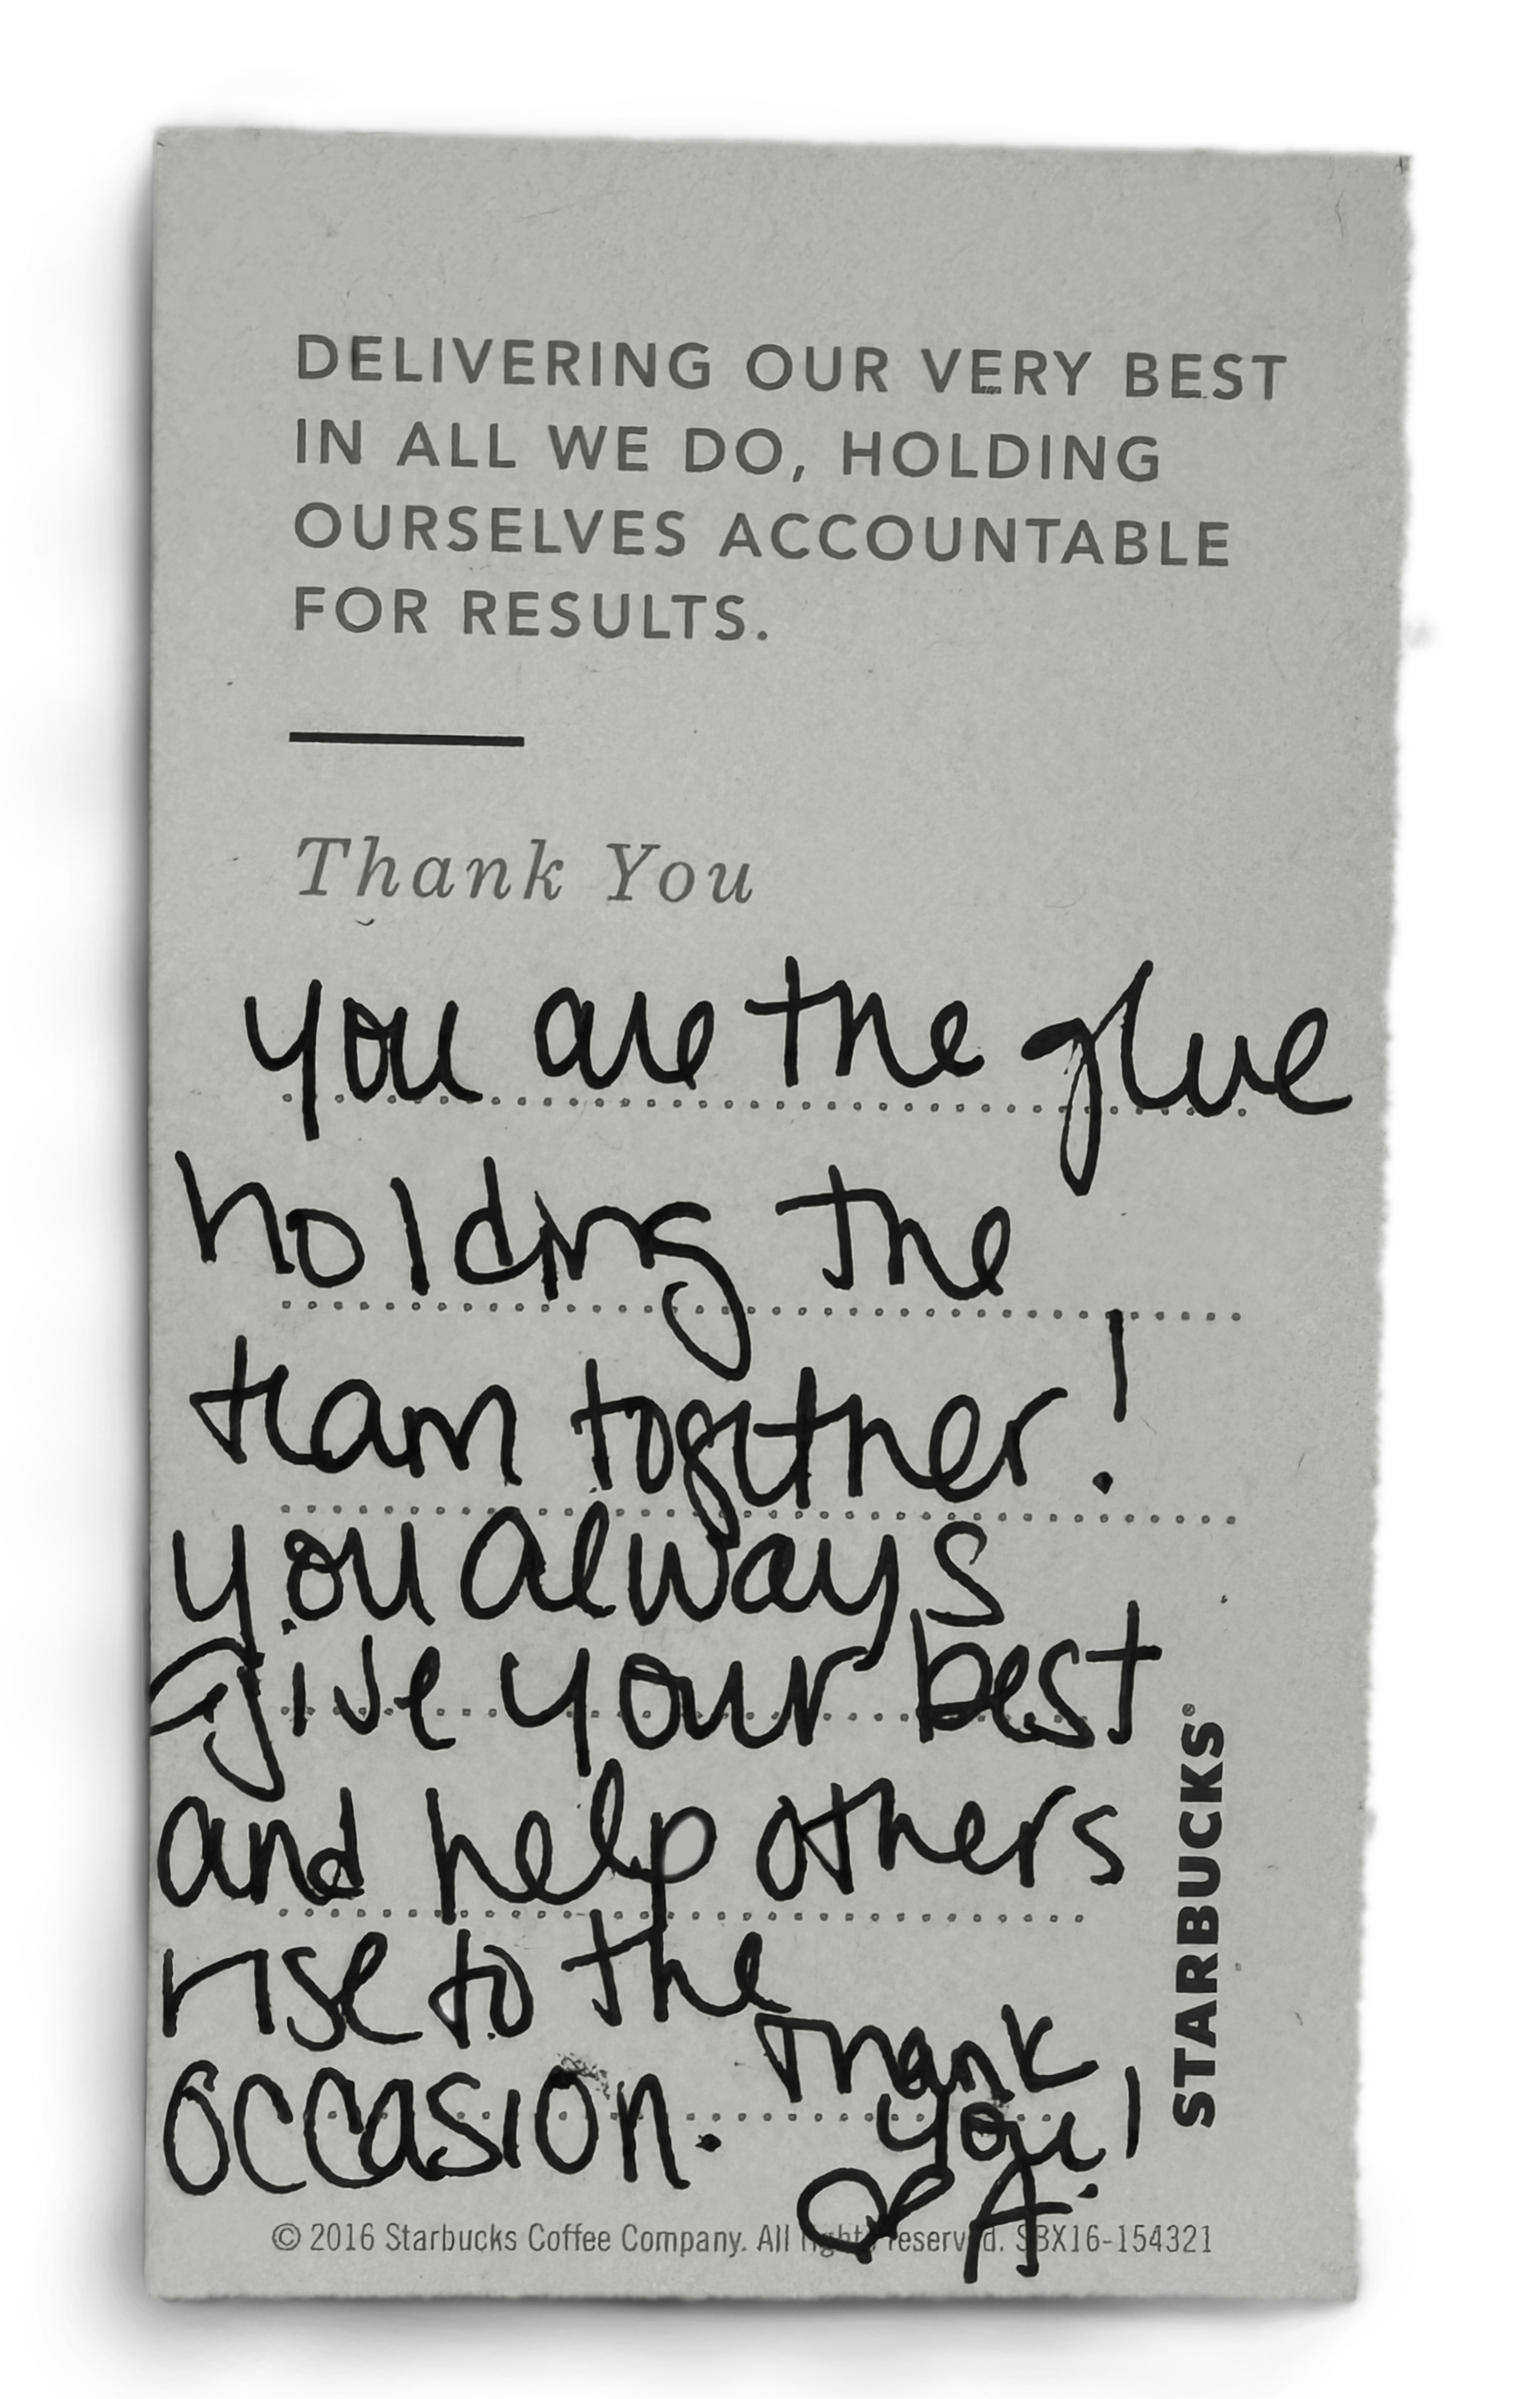 DELIVERING OUR VERY BEST
IN ALL WE DO, HOLDING
OURSELVES ACCOUNTABLE
FOR RESULTS.
Thank You
you are the glue
holding the
team together!
you always
give your best
and help others
rise to the
occasion. Thank
you!
♡ A.
STARBUCKS®
© 2016 Starbucks Coffee Company. All rights reserved. SBX16-154321